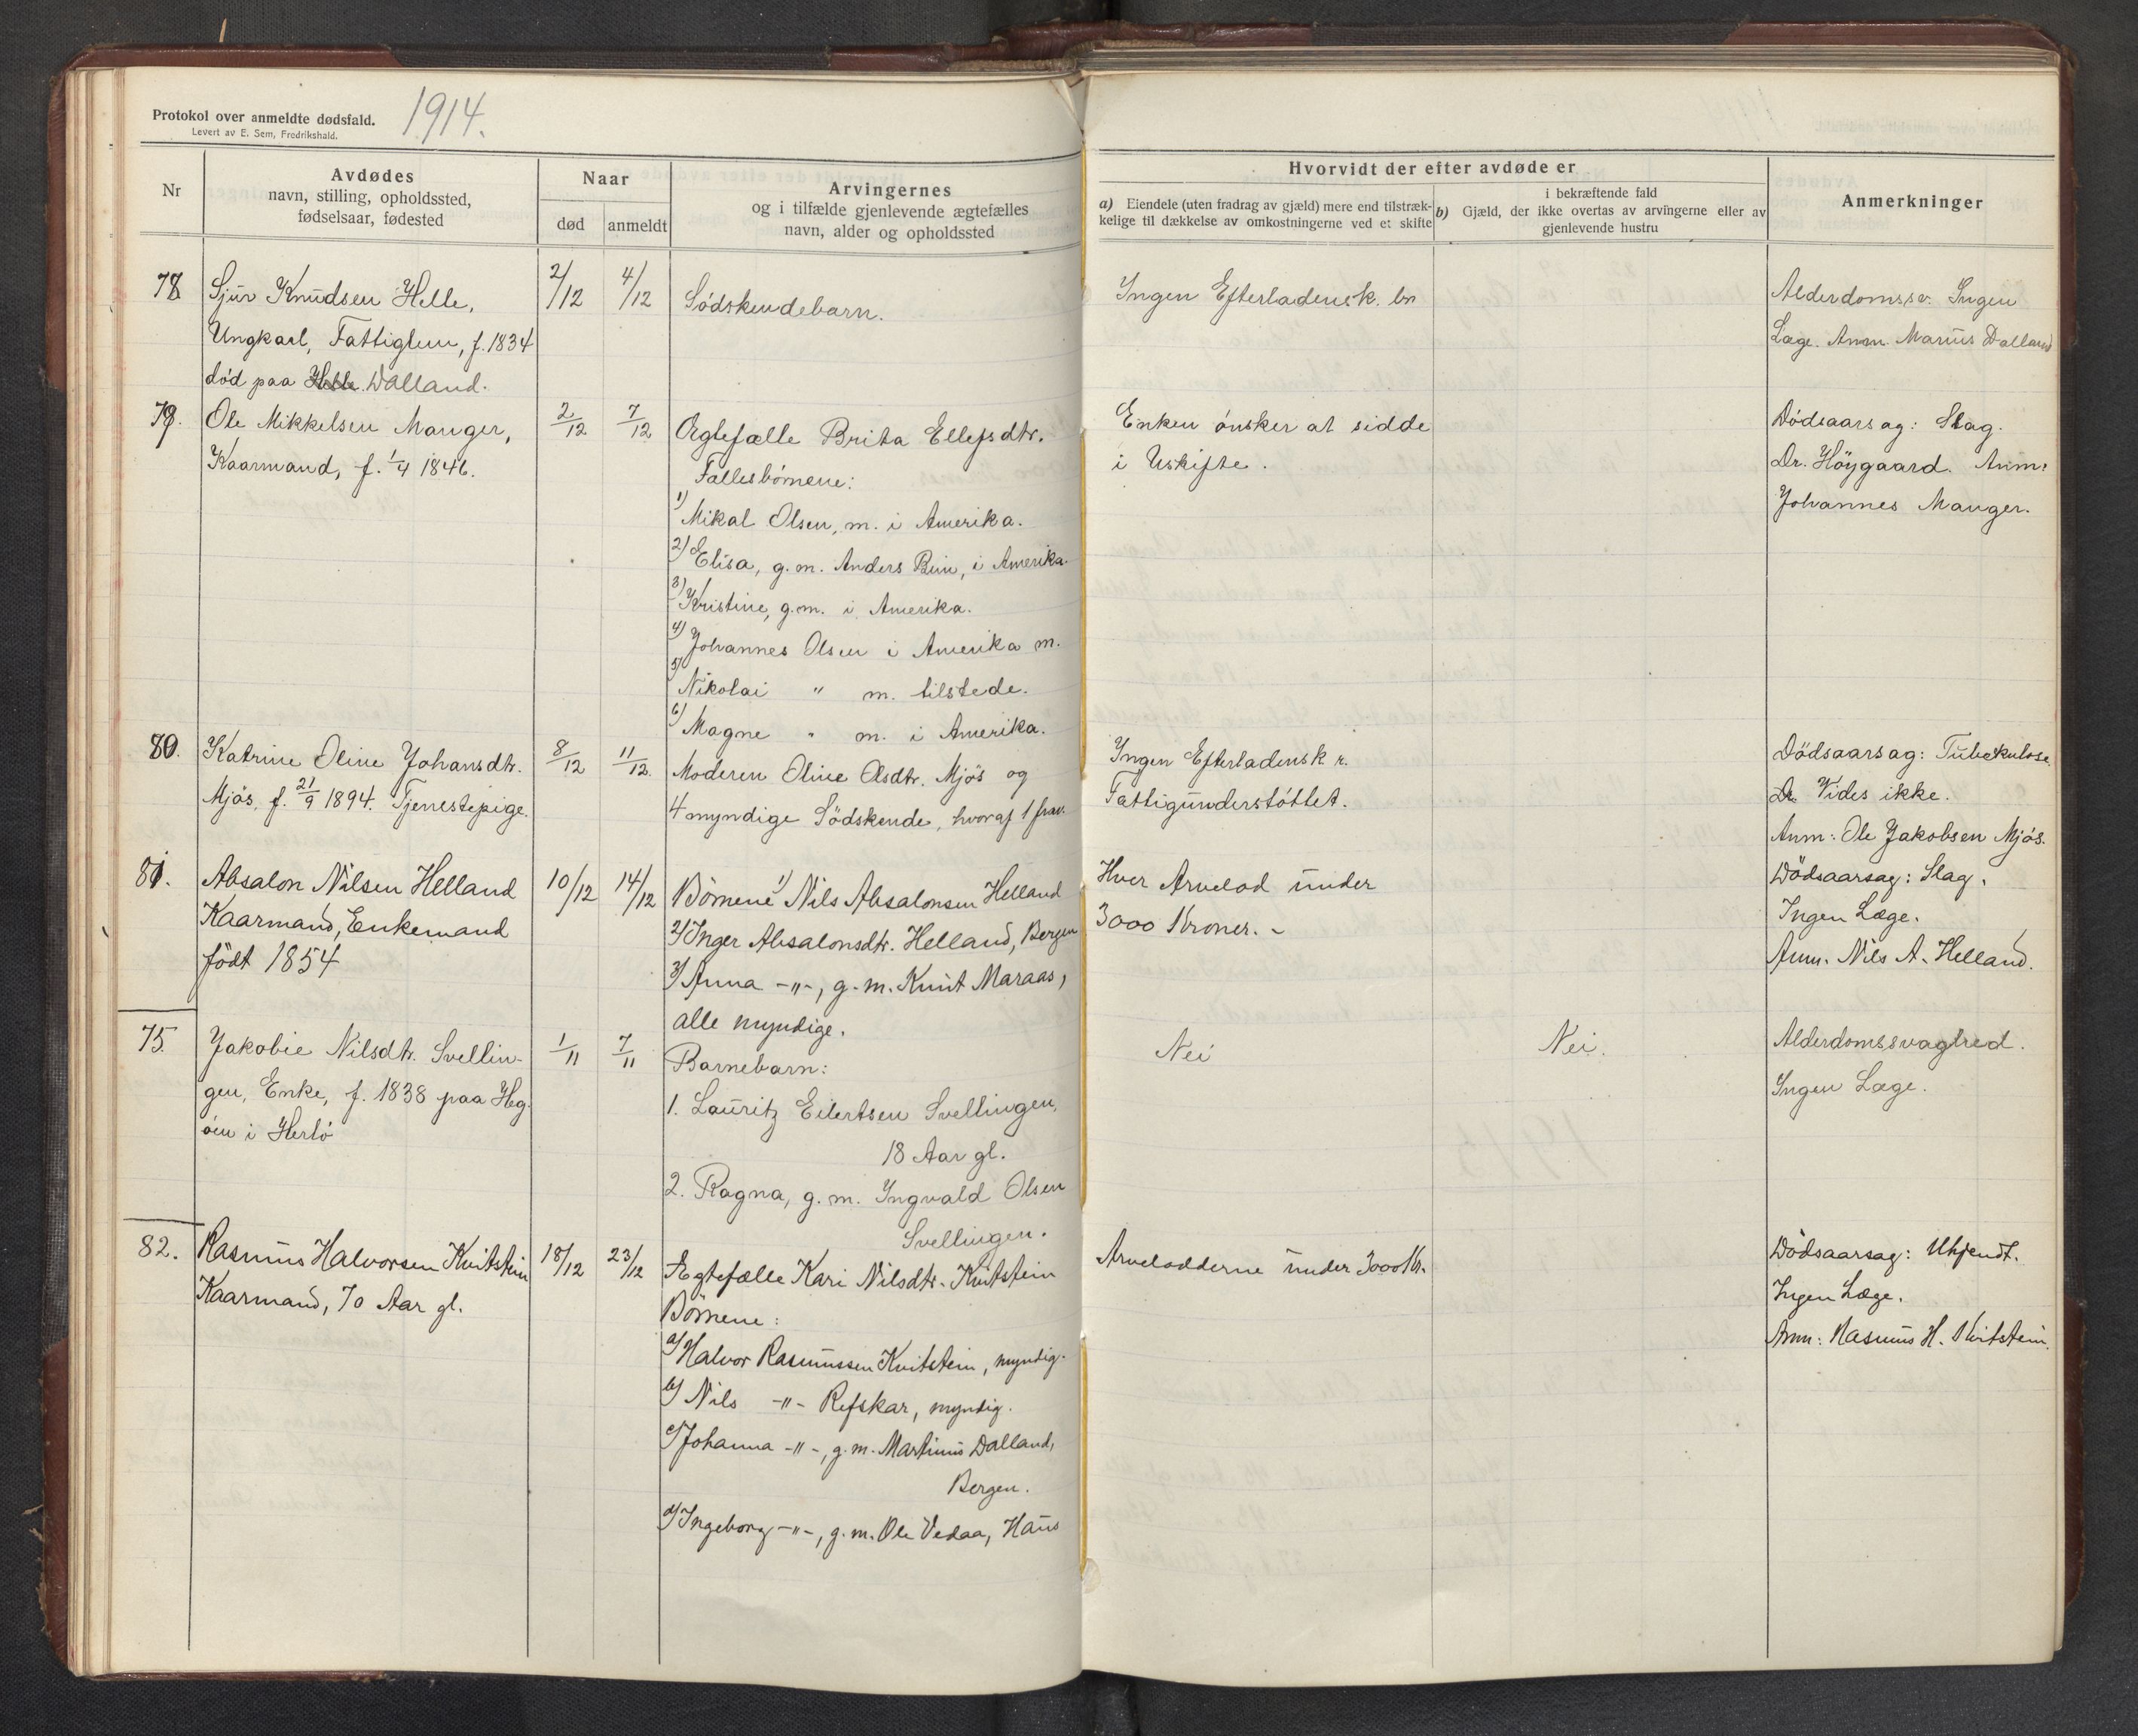 Protokol over anmeldte dødsfald. 1914.
Levert av E. Sem, Fredrikshald.
Nr
Avdødes
navn, stilling, opholdssted,
fødselsaar, fødested
Naar
død
anmeldt
Arvingernes
og i tilfælde gjenlevende ægtefælles
navn, alder og opholdssted
Hvorvidt der efter avdøde er
a) Eiendele (uten fradrag av gjæld) mere end tilstræk-
kelige til dækkelse av omkostningerne ved et skifte
i bekræftende fald
b) Gjæld, der ikke overtas av arvingerne eller av
gjenlevende hustru
Anmerkninger
78
Sjur Knudsen Helle,
Ungkarl, Fattiglem, f. 1834
død paa Helle Dalland.
2/12
4/12
Södskendebarn.
Ingen Efterladensk.
Alderdomssv. Ingen
Læge. Anm. Marius Dalland
79.
Ole Mikkelsen Manger,
Kaarmand, f. 1/4 1846.
2/12
7/12
Ægtefælle Brita Ellefsdtr.
Fællesbörnene:
1) Mikal Olsen, m. i Amerika.
2) Elisa, g. m. Anders Brun, i Amerika
3) Kristine, g.m. i Amerika.
4) Johannes Olsen i Amerika m.
5) Nikolai " m. tilstede.
6) Magne " m. i Amerika.
Enken önsker at sidde
i Uskifte.
Dödsaarsag: Slag.
Dr. Höygaard. Anm:
Johannes Manger.
80.
Katrine Oline Johansdtr.
Mjös, f. 21/9 1894. Tjenestepige.
8/12
11/12.
Moderen Oline Olsdtr. Mjös og
4 myndige Södskende, hvoraf 1 frav.
Ingen Efterladensk r.
Fattigunderstöttet.
Dödsaarsag: Tuberkulose.
Dr. Vides ikke.
Anm: Ole Jakobsen Mjös.
81.
Absalon Nilsen Helland
Kaarmand, Enkemand
födt 1854
10/12
14/12
Börnene 1) Nils Absalonsen Helland
2) Inger Absalonsdtr. Helland, Bergen
3) Anna -"-, g. m. Knut Maraas,
alle myndige.
Hver Arvelod under
3000 Kroner. -
Dödsaarsag: Slag.
Ingen Læge.
Anm. Nils A. Helland.
75.
Jakobie Nilsdtr. Svellin-
gen, Enke, f. 1838 paa Hög-
öen i Herlö
1/11
7/11
Barnebarn:
1. Lauritz Eilertsen Svellingen,
18 Aar gl.
2. Ragna, g. m. Ingvald Olsen
Svellingen.
Nei
Nei.
Alderdomssvaghed.
Ingen Læge.
82.
Rasmus Halvorsen Kvitstein
Kaarmand, 70 Aar gl.
18/12
23/12
Ægtefælle Kari Nilsdtr. Kvitstein
Börnene:
a) Halvor Rasmussen Kvitstein, myndig.
b) Nils -"- Refskar, myndig.
c) Johanna -"-, g. m. Martinus Dalland,
Bergen.
d) Ingeborg -"-, g. m. Ole Vedaa, Haus
Arvelodderne under 3000 Kr.
Dödsaarsag: Ukjendt.
Ingen Læge.
Anm: Rasmus H. Kvitstein.